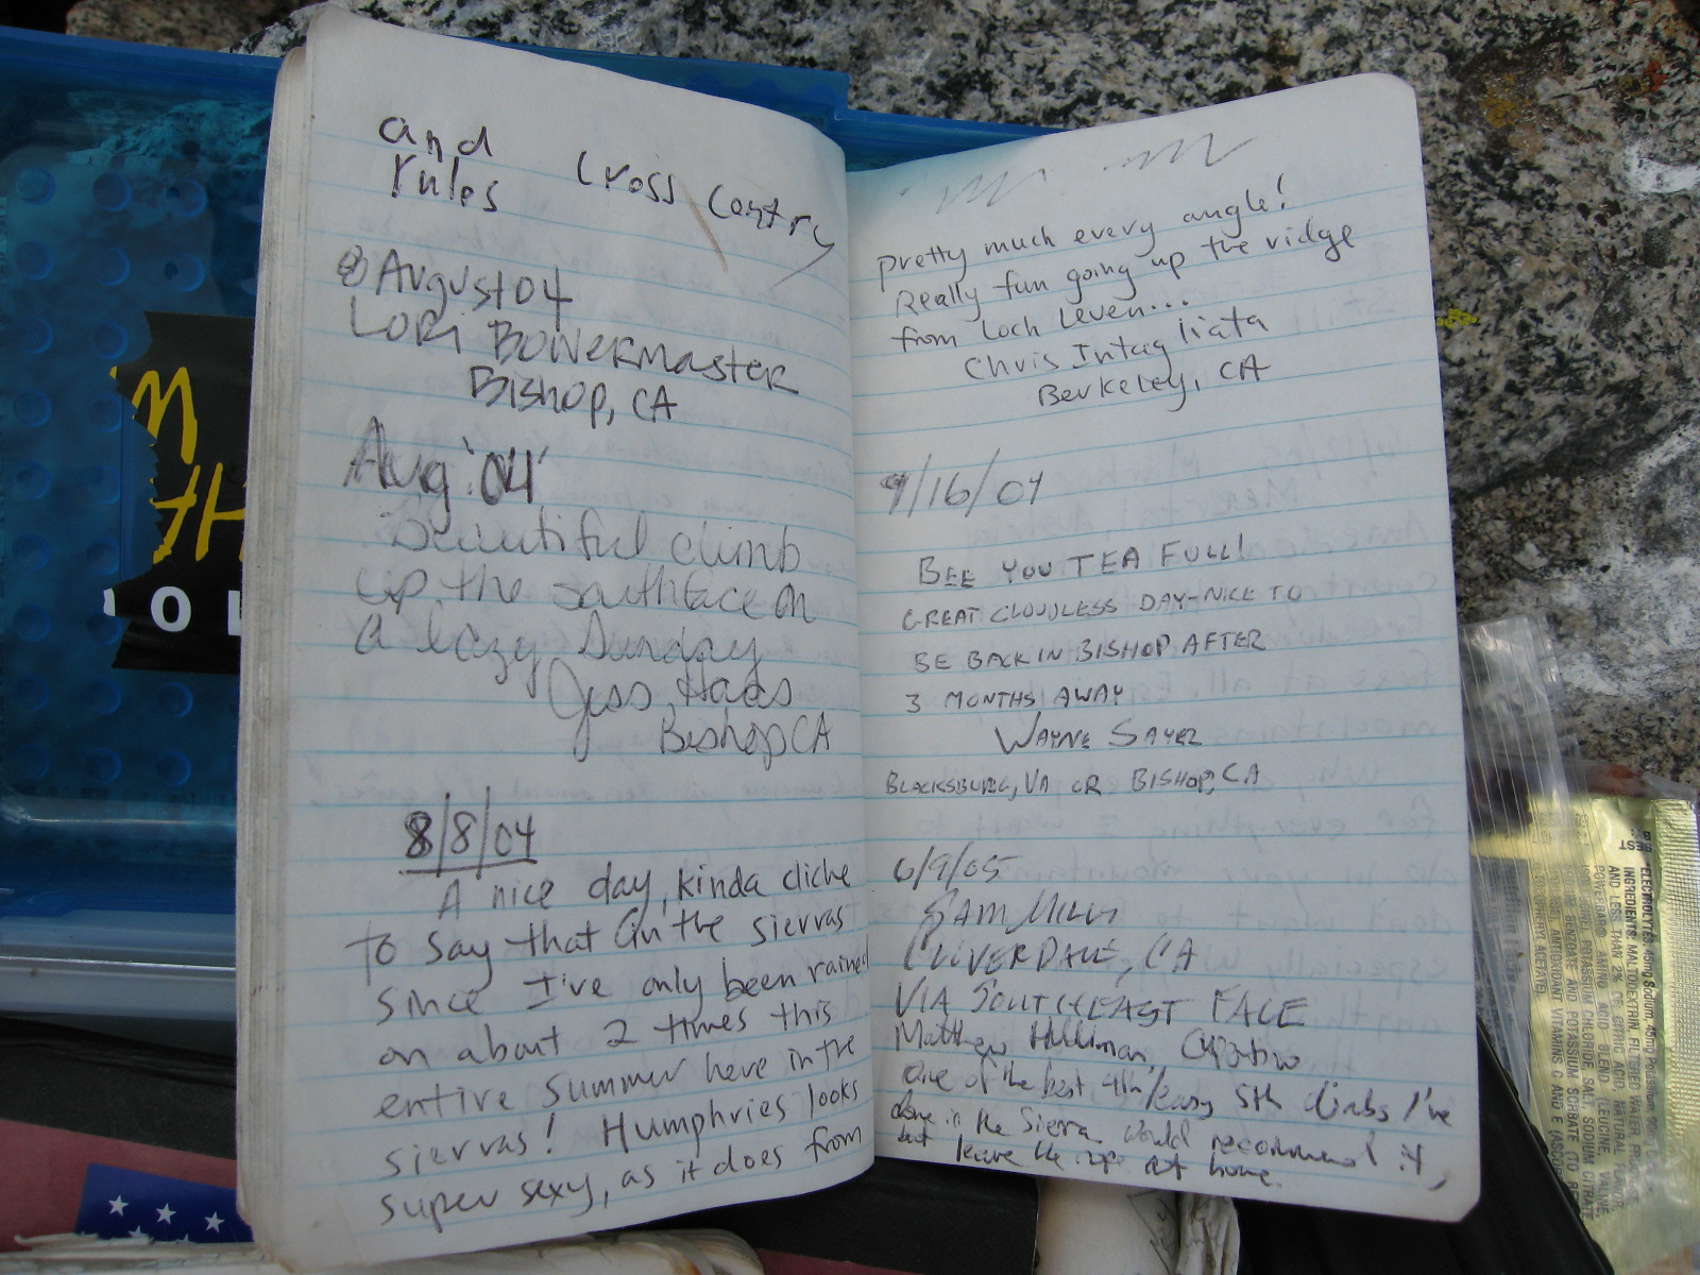 and
rules
Cross Contry
8 August 04
Lori Bowermaster
Bishop, CA
Aug '04'
Beautiful climb
up the southface on
a lazy Sunday
Jess Haas
Bishop CA
8/8/04
A nice day, kinda cliche
to say that in the sierras
since I've only been rained
on about 2 times this
entire summer here in the
sierras! Humphries looks
super sexy, as it does from
pretty much every angle!
Really fun going up the ridge
from Loch Leven...
Chris Intagliata
Berkeley, CA
9/16/04
BEE YOU TEA FULL!
GREAT CLOUDLESS DAY-NICE TO
BE BACK IN BISHOP AFTER
3 MONTHS AWAY
WAYNE SAYRE
BLACKSBURG, VA OR BISHOP, CA
6/9/05
SAM MILLS
CLOVERDALE, CA
VIA SOUTHEAST FACE
Matthew
one of the best 4th/easy 5th climbs I've
done in the Sierra. Would recommend it,
but leave the rope at home.
M
TH
ELECTROLYTES: 45mg Sodium, 45mg Potassium
INGREDIENTS: MALTODEXTRIN, FILTERED WATER,
AND LESS THAN 2% OF CITRIC ACID, NATURAL FLAVOR,
AMINO ACID BLEND (LEUCINE, VALINE
POTASSIUM CHLORIDE, SALT, SODIUM CITRATE
BENZOATE AND POTASSIUM SORBATE (TO
ANTIOXIDANT VITAMINS C AND E